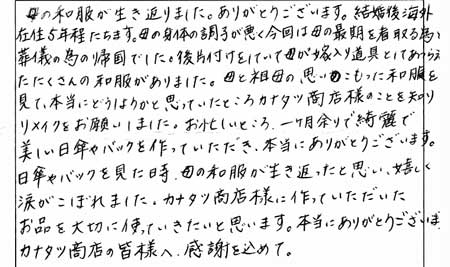 母の和服が生き返りました。ありがとうございます。結婚後海外
在住5年程たちます。母の身体の調子が悪く今回は母の最期を看取る為と
葬儀の為の帰国でした。後片付けをしていて母が嫁入り道具としてあつらえ
たたくさんの和服がありました。母と祖母の思いのこもった和服を
見て、本当にどうしようかと思っていたところカナタツ商店様のことを知り
リメイクをお願いしました。お忙しいところ、一ヶ月余りで綺麗で
美しい日傘やバックを作っていただき、本当にありがとうございます。
日傘やバックを見た時、母の和服が生き返ったと思い、嬉しく
涙がこぼれました。カナタツ商店様に作っていただいた
お品を大切に使っていきたいと思います。本当にありがとうございます
カナタツ商店の皆様へ、感謝を込めて。